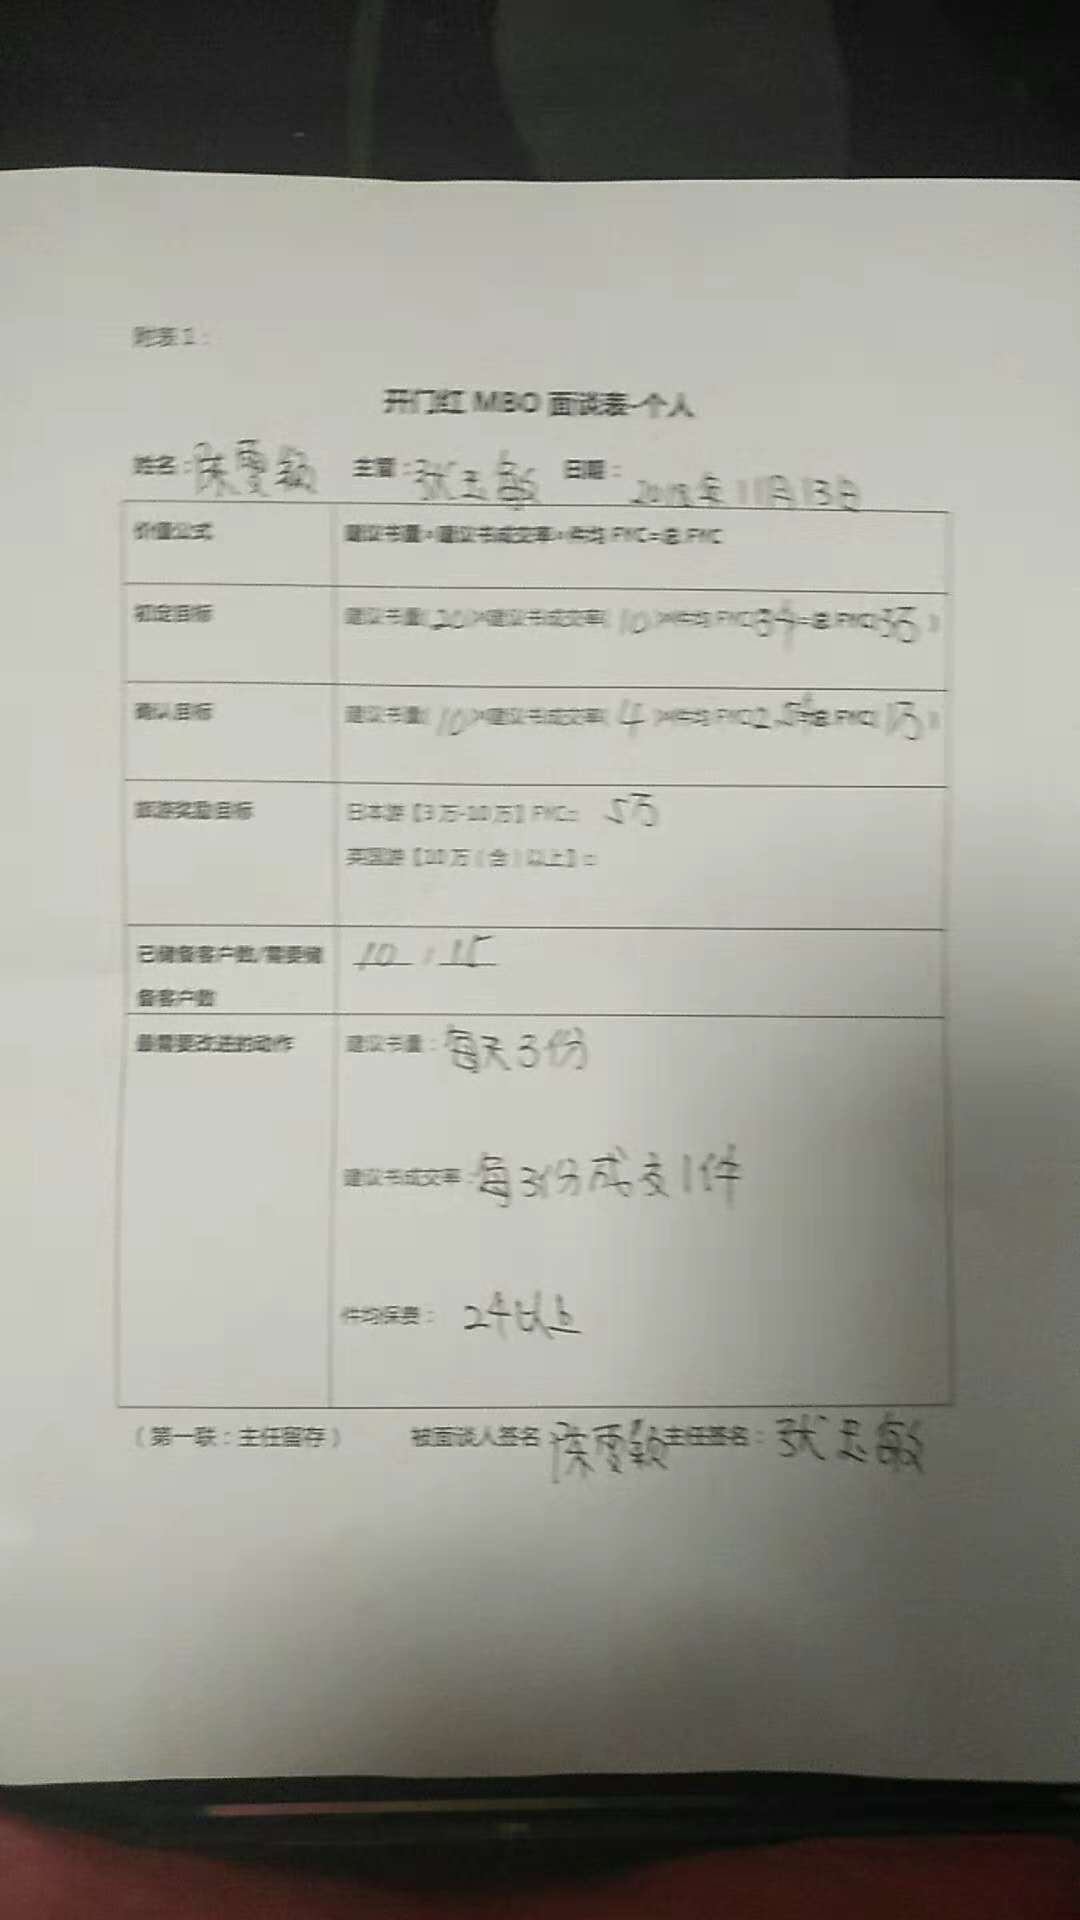 附表1：
开门红 MBO 面谈表-个人
姓名：陈雯颖 主管：张玉敏 日期：2018年11月13日
价值公式 建议书量*建议书成交率*件均 FYC=总 FYC
初定目标 建议书量(20)*建议书成交率(10)*件均 FYC(3千=总 FYC(3万)
确认目标 建议书量(10)*建议书成交率(4)*件均 FYC(2.5千=总 FYC(1万)
旅游奖励目标 日本游【3万-10万】FYC= 5万
英国游【10万（含）以上】=
已储备客户数/需要储 10 / 15
备客户数
最需要改进的动作 建议书量：每天3份
建议书成交率：每3份成交1件
件均保费：2千以上
（第一联：主任留存） 被面谈人签名：陈雯颖 主任签名：张玉敏